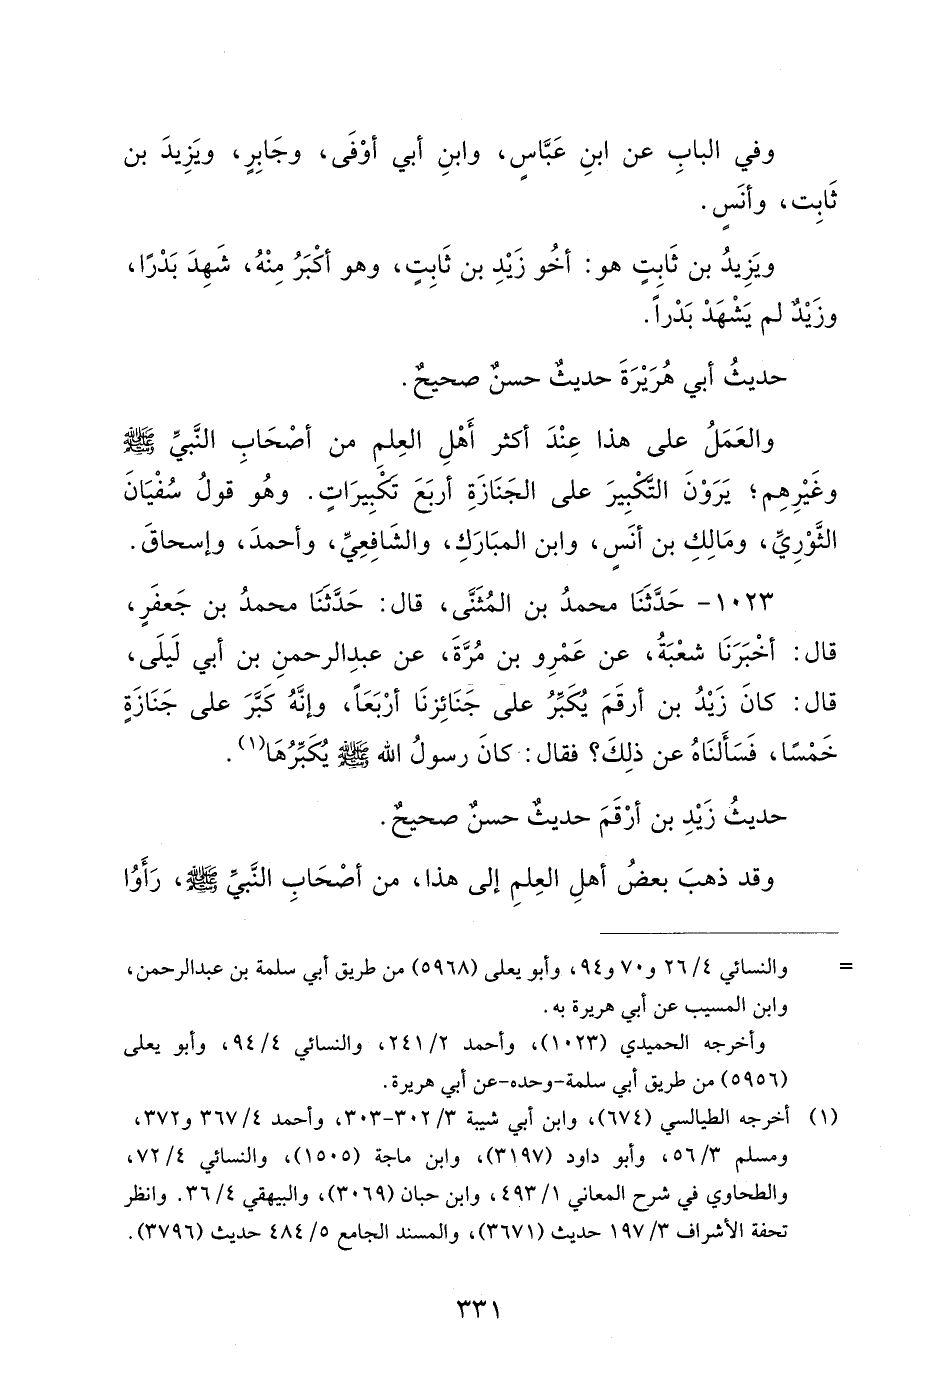 وفي البابِ عن ابنِ عَبَّاسٍ، وابنِ أبي أوْفَى، وجَابِرٍ، ويَزِيدَ بن
ثَابِت، وأنَسٍ.
ويَزِيدُ بن ثَابِتٍ هو: أخُو زَيْدِ بن ثَابِتٍ، وهو أكْبَرُ مِنْهُ، شَهِدَ بَدْرًا،
وزَيْدٌ لم يَشْهَدْ بَدْراً.
حديثُ أبي هُرَيْرَةَ حديثٌ حسنٌ صحيحٌ.
والعَمَلُ على هذا عِنْدَ أكثر أَهْلِ العِلمِ من أصْحَابِ النَّبيِّ ﷺ
وغَيْرِهِم؛ يَرَوْنَ التَّكْبِيرَ على الجَنَازَةِ أربَعَ تَكْبِيرَاتٍ. وهُو قولُ سُفْيَانَ
الثَّوْرِيِّ، ومَالِكِ بن أنَسٍ، وابن المبَارَكِ، والشَّافِعِيِّ، وأحمدَ، وإسحاقَ.
١٠٢٣- حَدَّثَنَا محمدُ بن المُثَنَّى، قال: حَدَّثَنَا محمدُ بن جَعفَرٍ،
قال: أخْبَرَنَا شعْبَةُ، عن عَمْرِو بن مُرَّةَ، عن عبدِالرحمنِ بن أبي لَيلَى،
قال: كانَ زَيْدُ بن أرقَمَ يُكَبِّرُ على جَنَائِزِنَا أرْبَعَاً، وإنَّهُ كَبَّرَ على جَنَازَةٍ
خَمْسًا، فَسَألنَاهُ عن ذلِكَ؟ فقال: كانَ رسولُ الله ﷺ يُكَبِّرُهَا(١).
حديثُ زَيْدِ بن أرْقَمَ حديثٌ حسنٌ صحيحٌ.
وقد ذهبَ بعضُ أهلِ العِلمِ إلى هذا، من أصْحَابِ النَّبيِّ ﷺ، رَأَوُا
= والنسائي ٤/ ٢٦ و٧٠ و٩٤، وأبو يعلى (٥٩٦٨) من طريق أبي سلمة بن عبدالرحمن،
وابن المسيب عن أبي هريرة به.
وأخرجه الحميدي (١٠٢٣)، وأحمد ٢/ ٢٤١، والنسائي ٤/ ٩٤، وأبو يعلى
(٥٩٥٦) من طريق أبي سلمة-وحده-عن أبي هريرة.
(١) أخرجه الطيالسي (٦٧٤)، وابن أبي شيبة ٣/ ٣٠٢-٣٠٣، وأحمد ٤/ ٣٦٧ و٣٧٢،
ومسلم ٣/ ٥٦، وأبو داود (٣١٩٧)، وابن ماجة (١٥٠٥)، والنسائي ٤/ ٧٢،
والطحاوي في شرح المعاني ١/ ٤٩٣، وابن حبان (٣٠٦٩)، والبيهقي ٤/ ٣٦. وانظر
تحفة الأشراف ٣/ ١٩٧ حديث (٣٦٧١)، والمسند الجامع ٥/ ٤٨٤ حديث (٣٧٩٦).
٣٣١